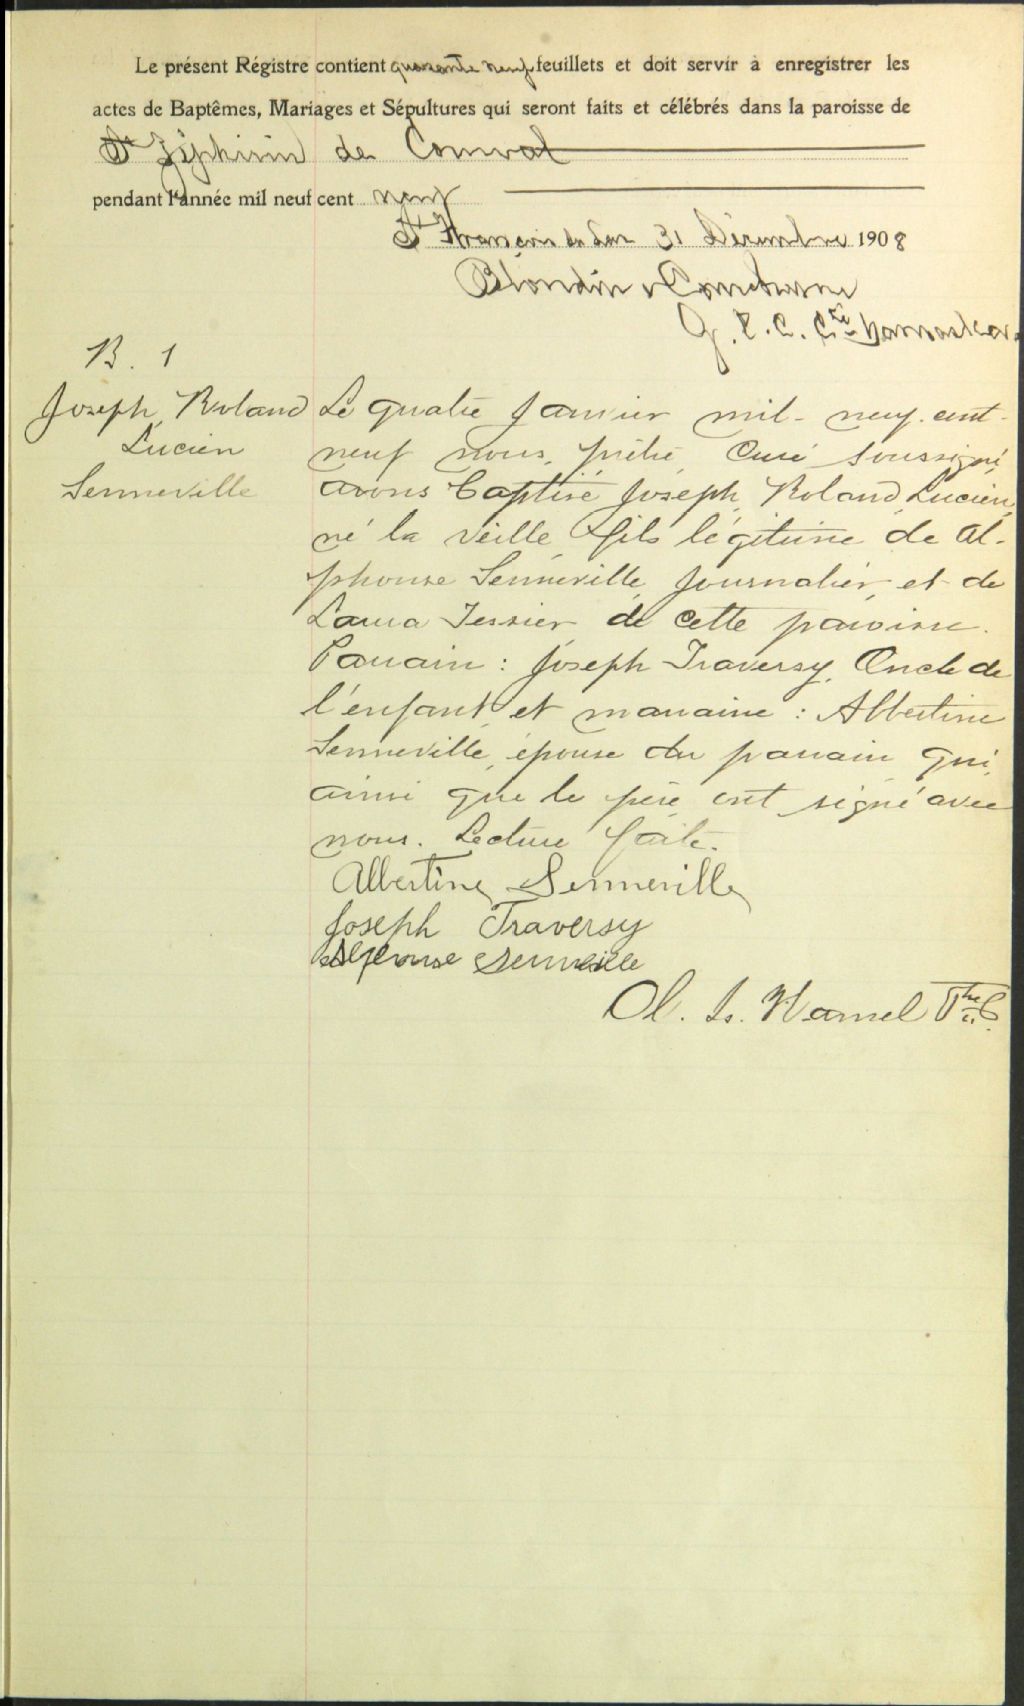 Le présent Régistre contient quarante neuf feuillets et doit servir à enregistrer les
actes de Baptêmes, Mariages et Sépultures qui seront faits et célébrés dans la paroisse de
St Zéphirin de Courval
pendant l'année mil neuf cent neuf
St François du Lac 31 Décembre 1908
Blondin &
G. P. C. C. Yamaska
B. 1
Joseph Roland
Lucien
Senneville
Le quatre Janvier mil-neuf-cent-
neuf nous, prêtre, Curé soussigné
avons baptisé Joseph, Roland, Lucien,
né la veille, fils légitime de Al-
phonse Senneville, journalier, et de
Laura Tessier de cette paroisse.
Parrain : Joseph Traversy, Oncle de
l'enfant, et marraine : Albertine
Senneville, épouse du parrain qui,
ainsi que le père ont signé avec
nous. Lecture faite.
Albertine Senneville
Joseph Traversy
Alphonse Senneville
Ol. Is. Hamel Ptre C.